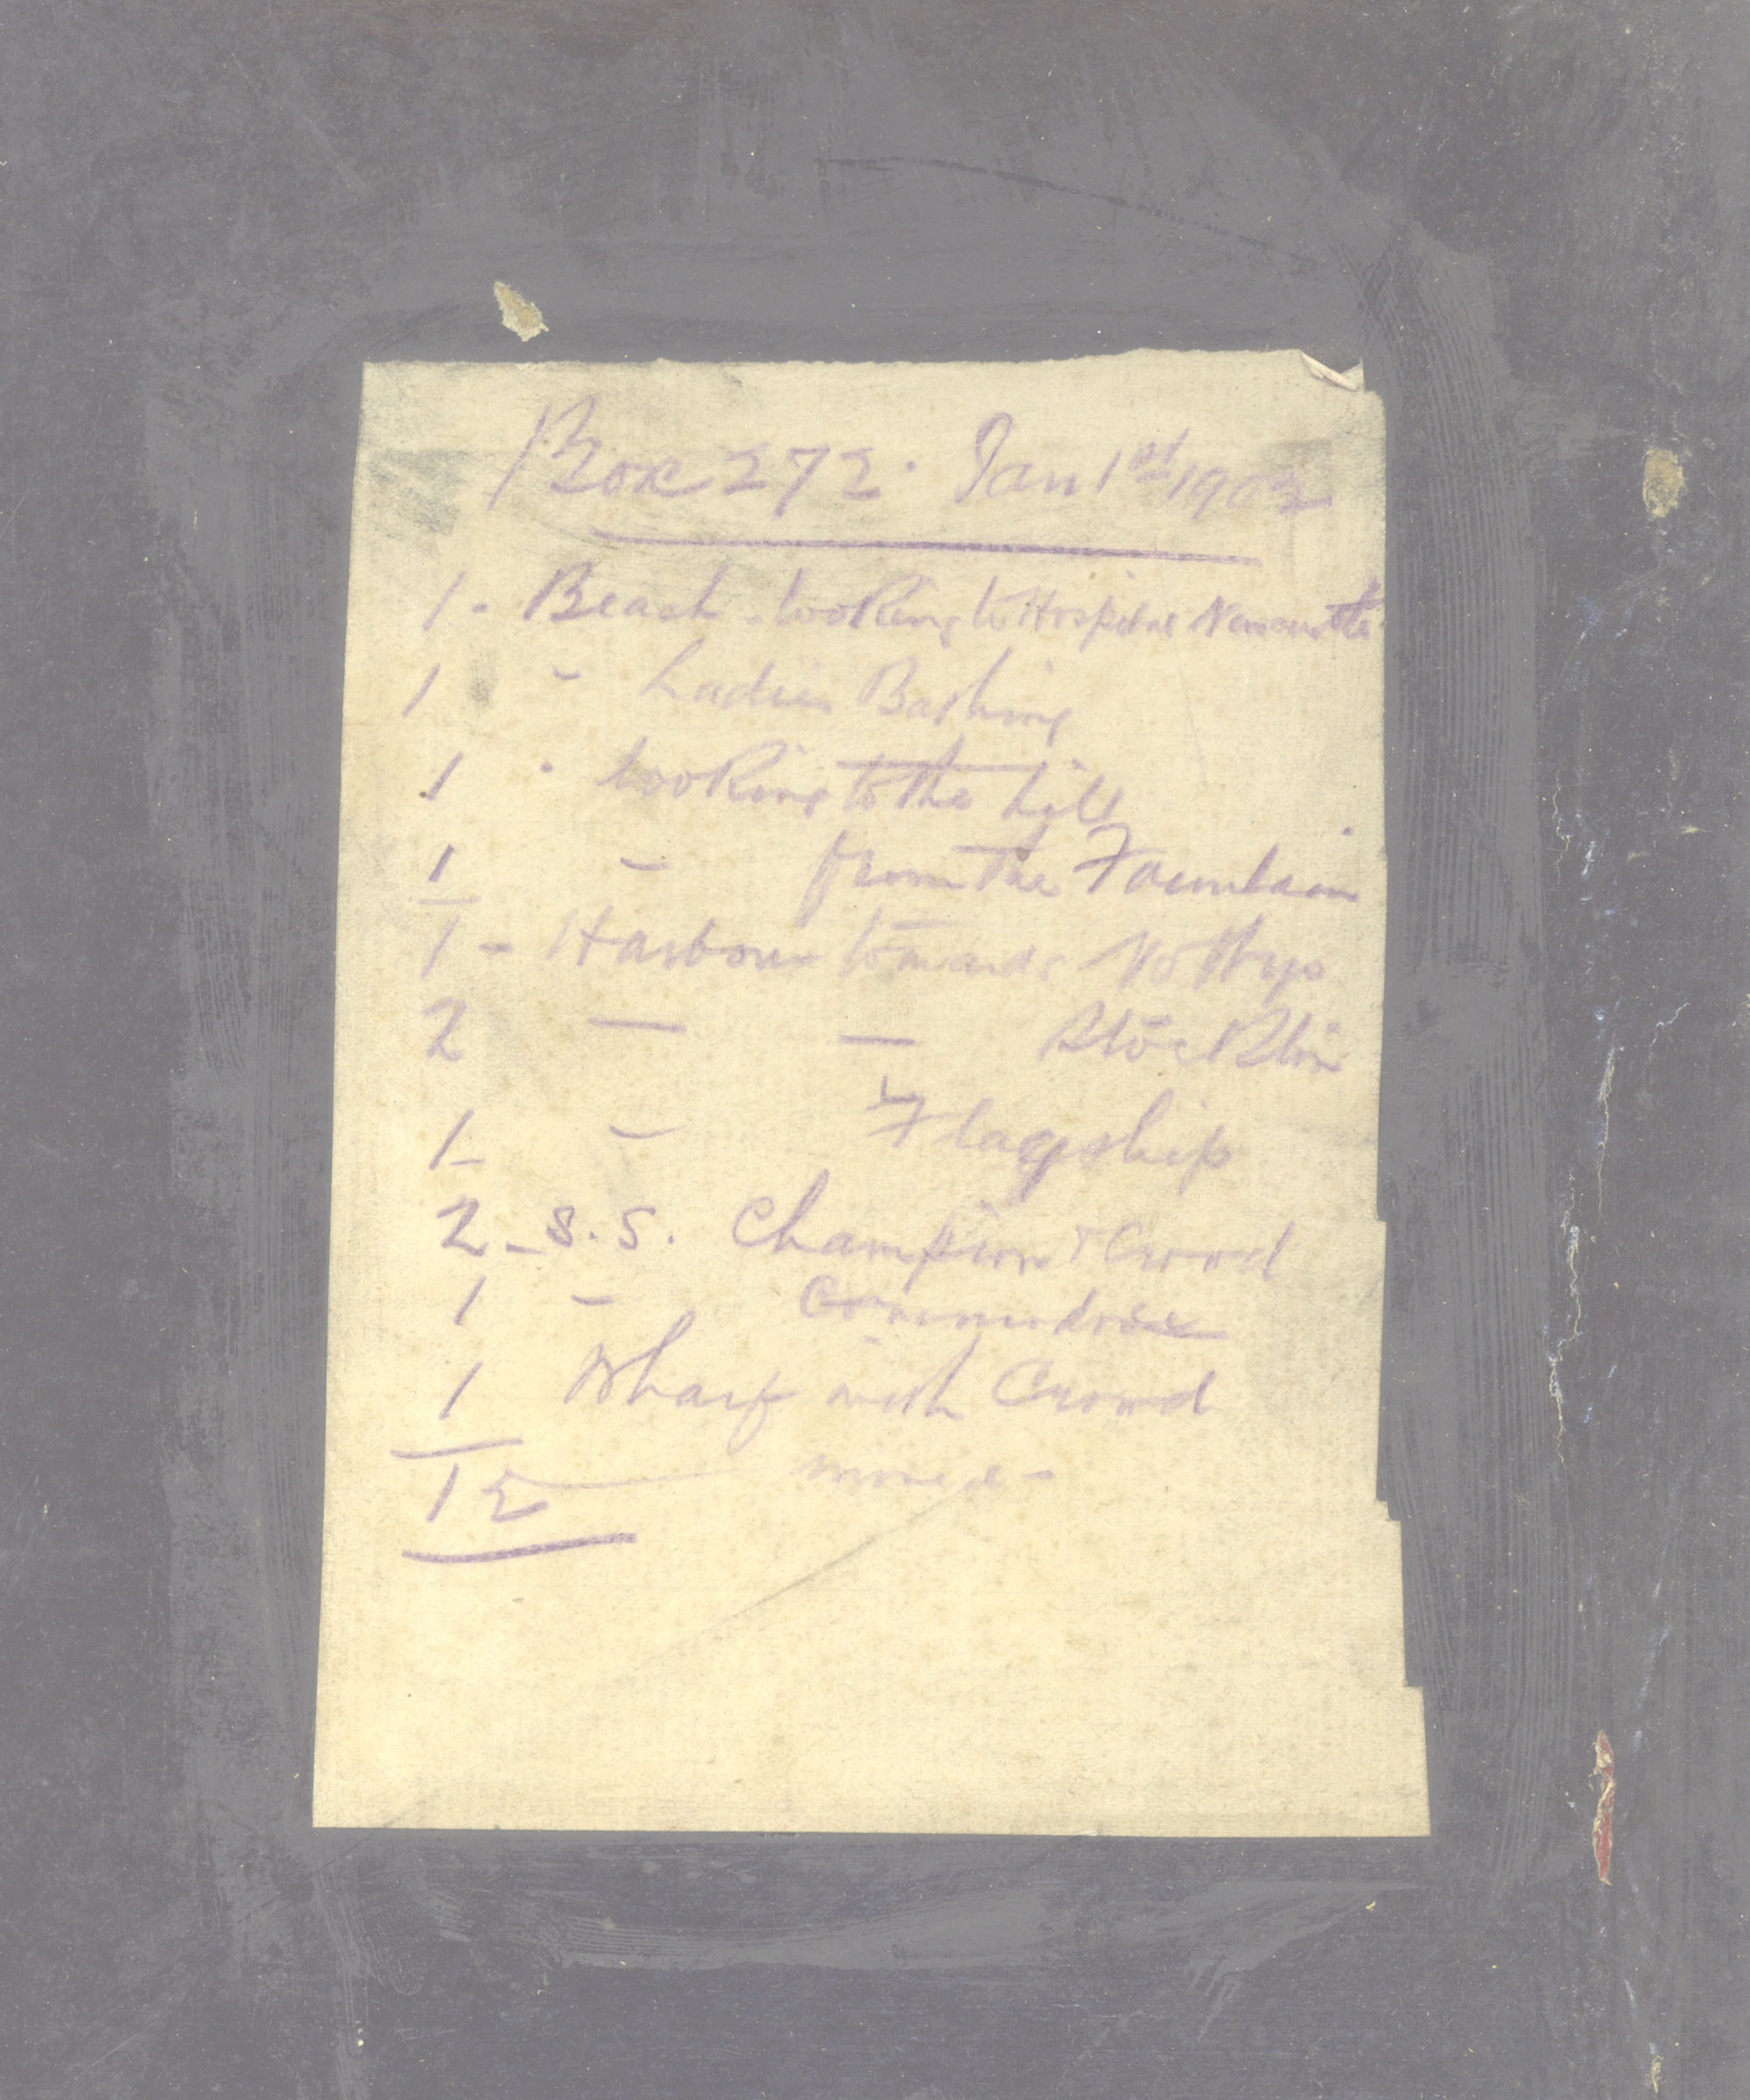 Box 272. Jan 1st 1902
1 - Beach - looking to Hospital Newcastle
1 " Ladies Bathing
1 " looking to the hill
1 " from the Fountain
1 - Harbour towards Nobbys
2 — — Stockton
1 - " Flagship
2 - S.S. Champion & Crowd
1 "
1 Wharf with Crowd
12